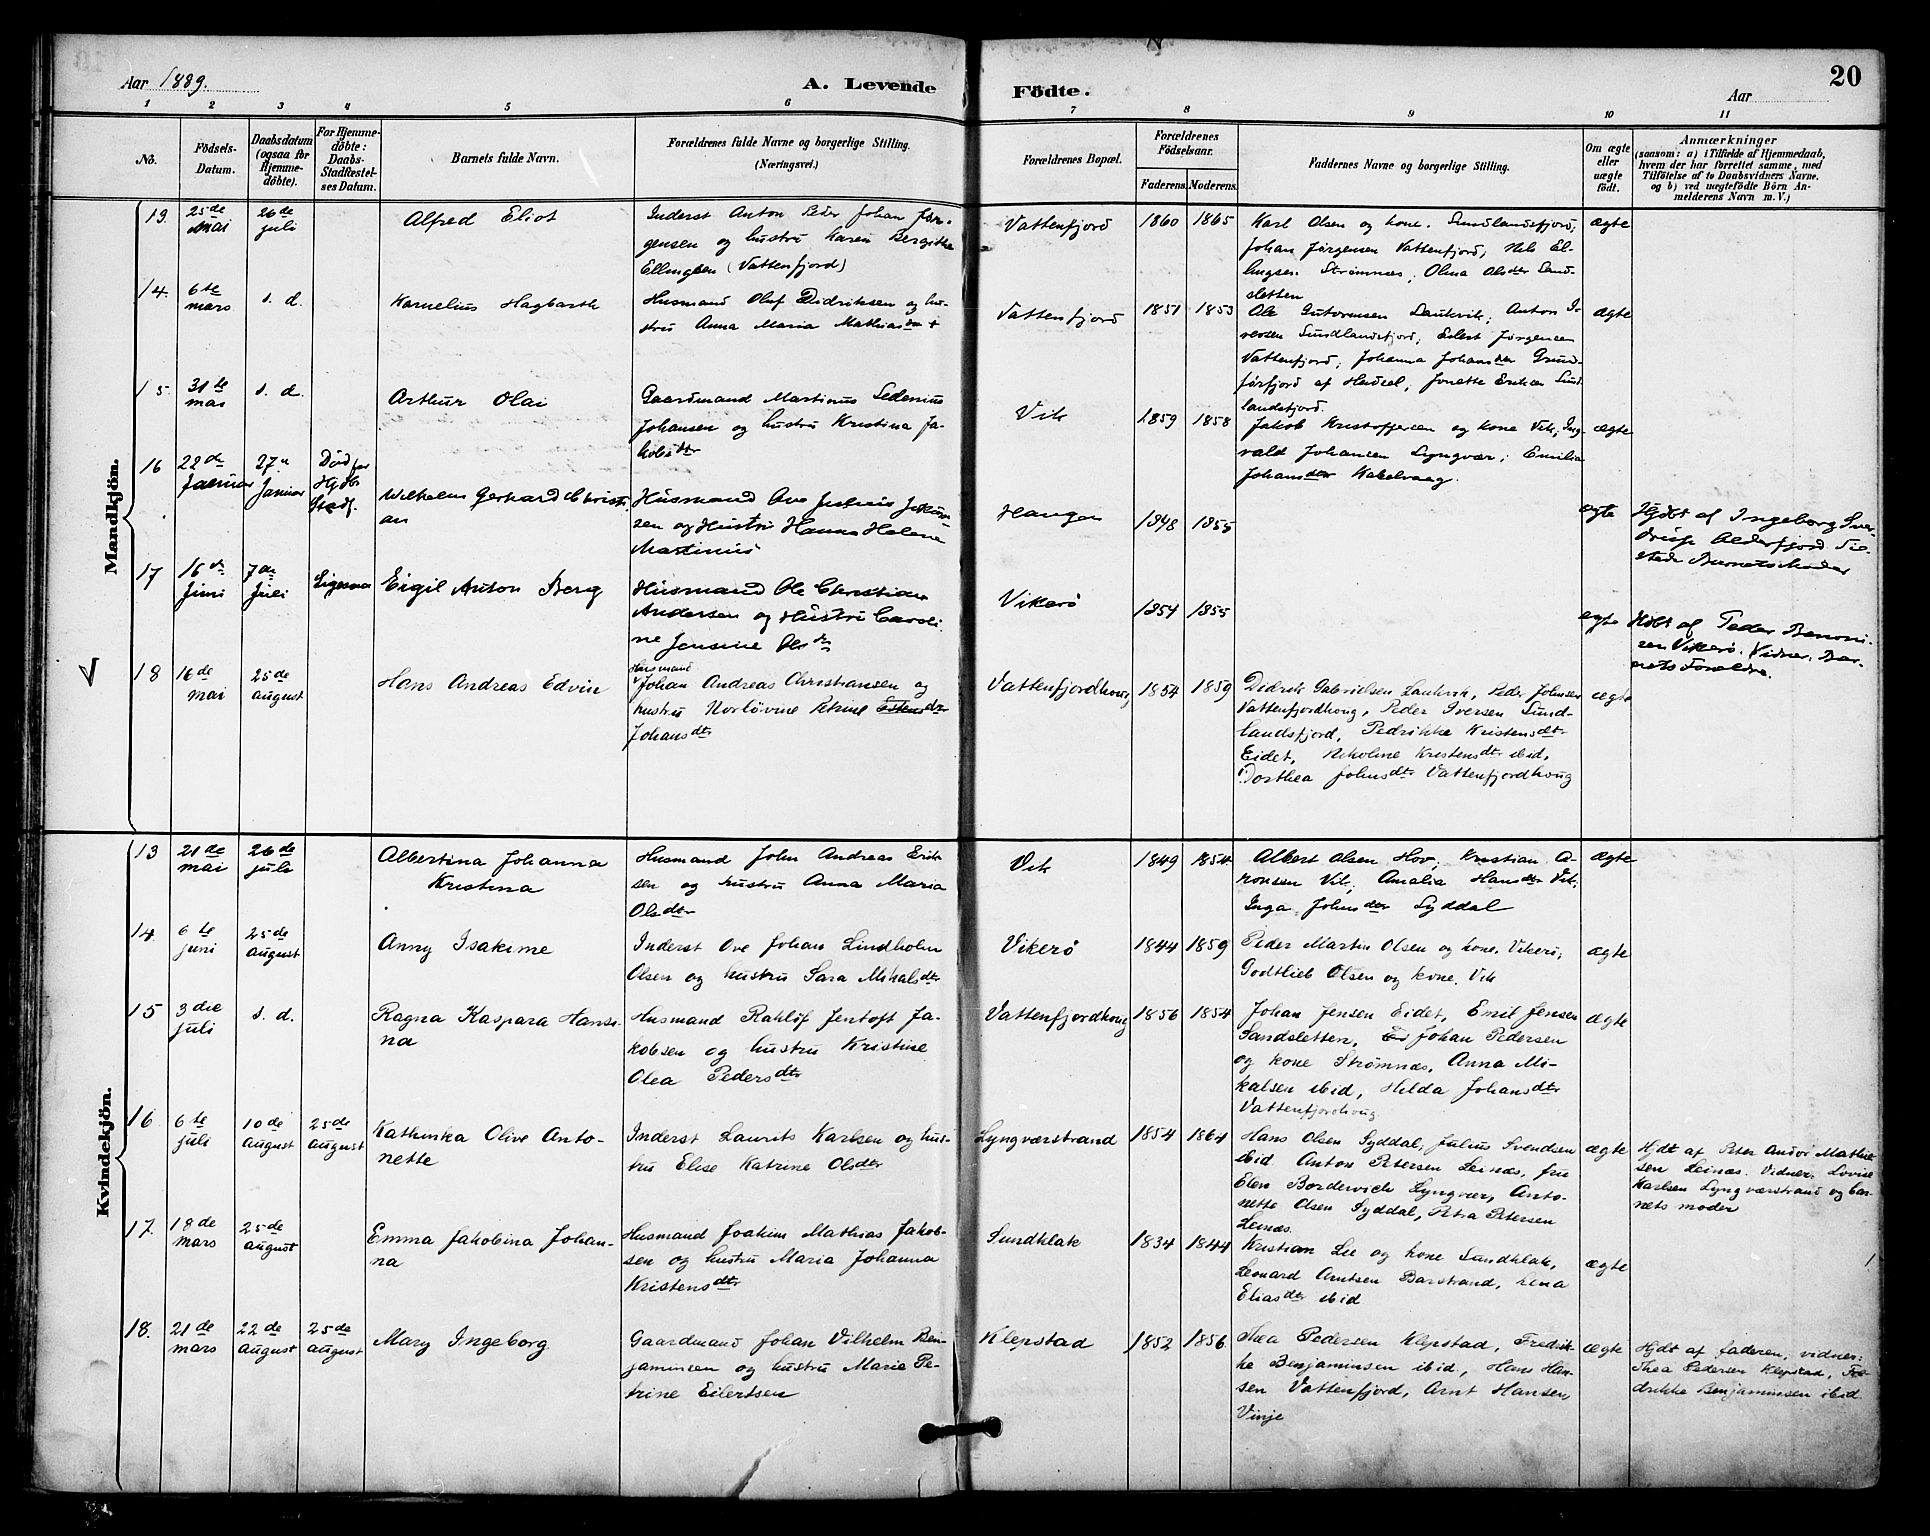 Aar 1889.
A. Levende Födte.
Aar
20
1 2 3 4 5 6 7 8 9 10 11
No.
Födsels-
Datum.
Daabsdatum
(ogsaa for
Hjemme-
döbte).
For Hjemme-
döbte:
Daabs-
Stadfæstel-
ses Datum.
Barnets fulde Navn.
Forældrenes fulde Navne og borgerlige Stilling.
(Næringsvei.)
Forældrenes Bopæl.
Forældrenes
Födselsaar.
Faderens. Moderens.
Faddernes Navne og borgerlige Stilling.
Om ægte
eller
uægte
födt.
Anmærkninger
(saasom: a) i Tilfælde af Hjemmedaab,
hvem der har forrettet samme, med
Tilföielse af to Daabsvidners Navne.
og b) ved uægtefödte Börn An-
melderens Navn m. V.)
Mandkjön.
13.
25de
Mai
26de
juli
Alfred Eliot
Inderst Anton Peder Johan Jør-
gensen og hustru Karen Bergitte
Ellingsen (Vattenfjord)
Vattenfjord
1860 1865
Karl Olsen og kone. Sundlandsfjord,
Johan Jørgensen Vattenfjord, Nils El-
lingsen Strømnæs, Olina Olsdtr Sand-
sletten
ægte
14.
6te
mars
s. d.
Kornelius Hagbarth
Husmand Oluf Didriksen og hu-
stru Anna Maria Mathiasdtr
Vattenfjord
1851 1853
Ole Gutormsen Laukvik; Anton I-
versen Sundlandsfjord, Eilert Jørgensen
Vattenfjord; Johanna Johansdtr Grund-
førfjord af Hadsel, Jonette Eriksen Sund
landsfjord.
ægte
15.
31te
mai
s. d.
Arthur Olai
Gaardmand Martinus Sedenius
Johansen og hustru Kristina Ja-
kobsdtr
Vik
1859 1858
Jakob Kristoffersen og kone Vik, Ing-
vald Johansen Lyngvær; Emilie
Johansdtr Kabelvaag.
ægte
16
22de
Januar
27de
Januar
Död før
Hjdbs
Stadf.
Wilhelm Gerhard Christi-
an
Husmand Ove Justnius Jakob-
sen og Hustru Hanna Helena
Martinius
Haugen
1848 1855
ægte
Hjdbt af Ingeborg Sver-
drup Olderfjord Til-
stede Barnets Moder
17
16de
Juni
7de
Juli
Ligesom
Eigil Anton Berg
Husmand Ole Christian
Andersen og Hustru Caroli
ne Jensine Olsdtr
Vikerø
1854 1855
ægte
Hjdbt af Peder Benoni-
sen Vikerø. Vidner. Bar-
nets Forældre.
18
16de
mai
25de
august
Hans Andreas Edvin
Husmand
Johan Andreas Christiansen og
hustru Norlövine Petrine Johansdtr
Vattenfjordhoug
1854 1859
Didrik Gabrielsen Laukvik, Peder Johnsen
Vattenfjordhoug, Peder Iversen Sund-
landsfjord, Pedrikke Kristensdtr
Eidet, Nikoline Kristensdtr ibid,
Dorthea Johnsdtr Vattenfjordhoug
ægte
Kvindekjön.
13
21de
mai
26de
juli
Albertina Johanna
Kristina
Husmand John Andreas Erik
sen og hustru Anna Maria
Olsdtr
Vik
1849 1854
Albert Olsen Hov; Kristian A-
ronsen Vik; Amalia Hansdtr Vik,
Inga Johnsdtr Syddal
ægte
14.
6te
juni
25de
august
Anny Isakime
Inderst Ove Johan Lindholm
Olsen og hustru Sara Mikalsdtr
Vikerö
1844 1859
Peder Martin Olsen og kone. Vikerö,
Godtlieb Olsen og kone. Vik
ægte
15
3die
juli
s. d.
Ragna Kaspara Hansi-
na
Husmand Rahlöf Jentoft Ja-
kobsen og hustru Kristine
Olea Pedersdtr
Vattenfjordhoug
1856 1854
Johan Jensen Eidet, Emil Jensen
Sandsletten, Johan Pedersen
og kone Strømnæs, Anna Mi-
kalsen ibid, Hilda Johansdtr
Vattenfjordhoug
ægte
16.
6te
juli
10de
august
25de
august
Kathinka Olive Anto-
nette
Inderst Laurits Karlsen og hus-
tru Elise Katrine Olsdtr
Lyngværstrand
1854 1864
Hans Olsen Syddal, Julius Svendsen
ibid. Anton Petersen Leinæs, fru
Elen Bordevich Lyngvær, Anto-
nette Olsen Syddal, Petra Petersen
Leinæs.
ægte
Hjdt af Peter Andor Mathie
sen Leinæs. Vidner, Lovise
Karlsen Lyngværstrand og bar-
nets moder
17.
18de
mars
25de
august
Emma Jakobina Johan-
na
Husmand Joakim Mathias Jakob-
sen og hustru Maria Johanna
Kristensdtr
Sundklak
1834 1844
Kristian Lie og kone Sundklak,
Leonard Arntsen Barstrand, Lena
Eliasdtr ibid
ægte
18.
21de
mars
22de
august
25de
august
Mary Ingeborg
Gaardmand Johan Vilhelm Ben-
jaminsen og hustru Marie Pe-
trine Eilertsen
Klepstad
1852 1856
Thea Pedersen Klepstad, Fredrik-
ke Benjaminsen ibid, Hans Han-
sen Vattenfjord, Arnt Hansen,
Vinje
ægte
Hjdt af faderen, vidner:
Thea Pedersen Klepstad, Fre-
drikke Benjaminsen ibid